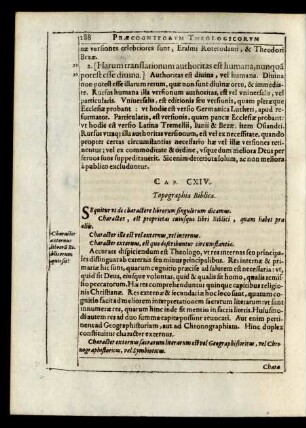 288 PRÆCOGNITORUM THEOLOGICORUM
ut versiones celebriores sunt, Erasmi Roterodami, & Theodori
Bezæ.
2. [Harum translationum authoritas est humana, nunquā
potest esse divina.] Authoritas est divina, vel humana. Divina
non potest esse illarum rerum, quæ non sunt divinæ ortæ, & immediatæ.
Rursus humana illa versionum authoritas, est vel universalis, vel
particularis. Universalis, est editionis seu versionis, quam pleræque
Ecclesiæ probant: ut hodie est versio Germanica Lutheri, apud reformatos.
Particularis, est versionis, quam paucæ Ecclesiæ probant:
ut hodie est versio Latina Tremellii, Junii & Bezæ: item Osiandri.
Rursus utraq; illa authoritas versionum, est vel ex necessitate, quando
propter certas circumstantias necessariò hæ vel illæ versiones retinentur;
vel ex commoditate & ordine, usque dum meliora Deus per
servos suos suppeditaverit. Sic enim deteriora salum, ac non meliora
à publico excluduntur.
CAP. CXIV.
Topographia Biblica.
Sequitur ut de charactere librorum singulorum dicamus.
Character, est proprietas cuiusque libri Biblici, quam habet præ
aliis.
Character ille est vel externus, vel internus.
Character externus, est quo describuntur circumstantiæ.
Character
externus
Accurate dispiciendum est Theologo, ut res internas seu principales
distinguat ab externis seu minus principalibus. Res internæ & primariæ
hic sunt, quarum cognitio præcisè ad salutem est necessaria: ut,
quid sit Deus, eiusque voluntas, quid & qualis sit homo, qualis remissio
peccatorum. Hæ res comprehenduntur quinque capitibus religionis
Christianæ. Res externæ & secundariæ hoc loco sunt, quarum cognitio
facit ad meliorem interpretationem sacrarum literarum: ut sunt
innumeræ res, quarum hinc inde fit mentio in sacris literis. Huiusmodi
autem res ad duo summa capita possunt revocari. Aut enim pertinent
ad Geographistoriam, aut ad Chronographiam. Hinc duplex
constituitur character externus.
Character externus sacrarum literarum est vel Geographistoricus, vel Chronographistoricus,
vel Symbioticus.
Chara-